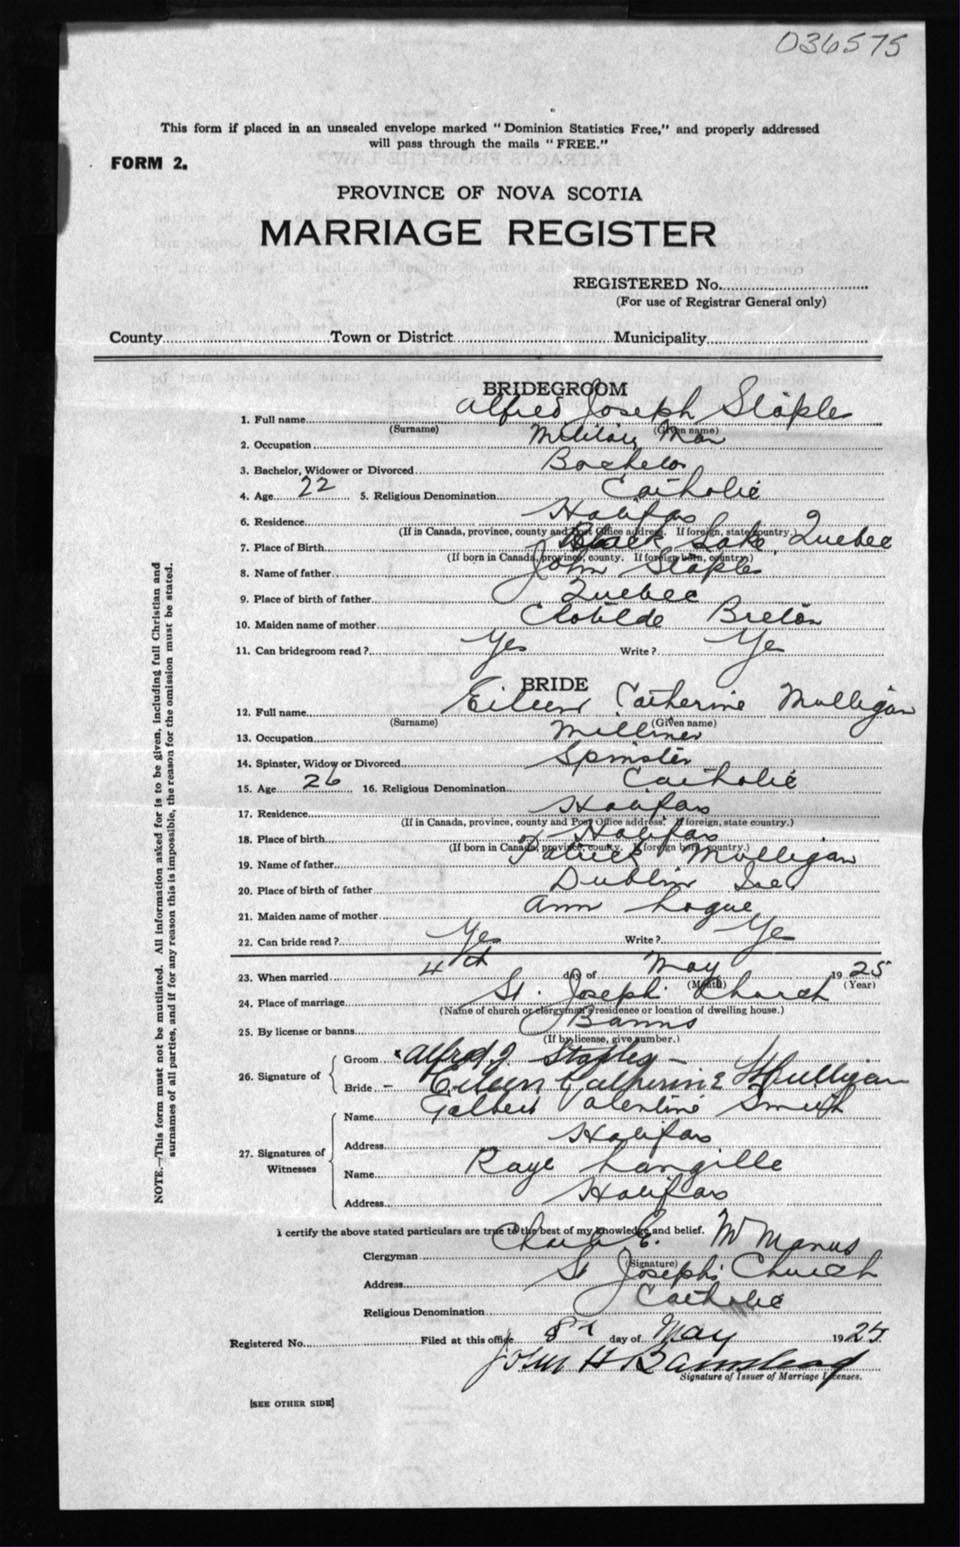 036575
This form if placed in an unsealed envelope marked "Dominion Statistics Free," and properly addressed
will pass through the mails "FREE."
FORM 2.
PROVINCE OF NOVA SCOTIA
MARRIAGE REGISTER
REGISTERED No.
(For use of Registrar General only)
County Town or District Municipality
BRIDEGROOM
1. Full name Alfred Joseph Staples
(Surname) (Given name)
2. Occupation Military Man
3. Bachelor, Widower or Divorced Bachelor
4. Age 22 5. Religious Denomination Catholic
6. Residence Halifax
(If in Canada, province, county and Post Office address. If foreign, state country.)
7. Place of Birth Black Lake, Quebec
(If born in Canada, province, county. If foreign born, country)
8. Name of father John Staples
9. Place of birth of father Quebec
10. Maiden name of mother Clotilde Breton
11. Can bridegroom read? Yes Write? Yes
BRIDE
12. Full name Eileen Catherine Mulligan
(Surname) (Given name)
13. Occupation Milliner
14. Spinster, Widow or Divorced Spinster
15. Age 26 16. Religious Denomination Catholic
17. Residence Halifax
(If in Canada, province, county and Post Office address. If foreign, state country.)
18. Place of birth Halifax
(If born in Canada, province, county. If foreign born, country.)
19. Name of father Patrick Mulligan
20. Place of birth of father Dublin Ire
21. Maiden name of mother Ann Logue
22. Can bride read? Yes Write? Yes
23. When married 4th day of May 1925
(Month) (Year)
24. Place of marriage St. Joseph Church
(Name of church or clergyman's residence or location of dwelling house.)
25. By license or banns Banns
(If by license, give number.)
26. Signature of Groom Alfred J Staples
Bride Eileen Catherine Mulligan
27. Signatures of Witnesses Name Valentine Smith
Address Halifax
Name Raye Langille
Address Halifax
I certify the above stated particulars are true to the best of my knowledge and belief.
Clergyman Charles E. McManus
(Signature)
Address St Joseph's Church
Religious Denomination Catholic
Registered No. Filed at this office 8th day of May 1925
John H
Signature of Issuer of Marriage Licenses.
[SEE OTHER SIDE]
NOTE.—This form must not be mutilated. All information asked for is to be given, including full Christian and
surnames of all parties, and if for any reason this is impossible, the reason for the omission must be stated.